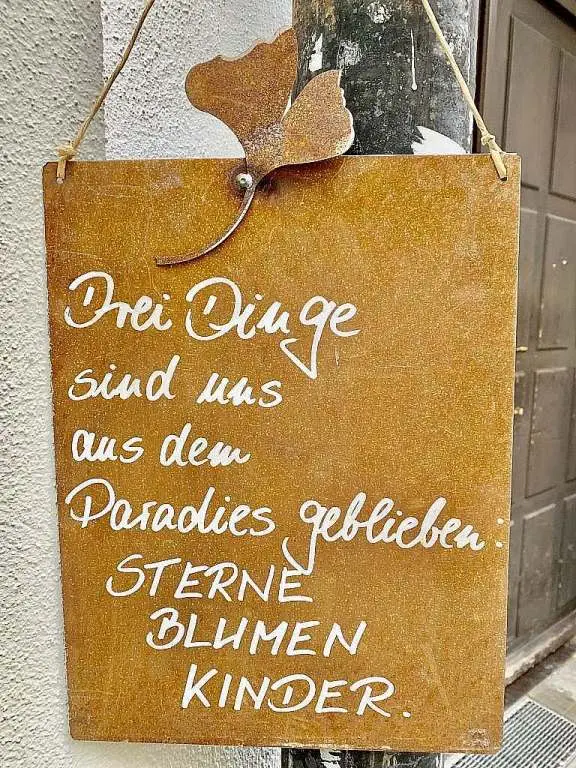 Drei Dinge
sind uns
aus dem
Paradies geblieben:
STERNE
BLUMEN
KINDER.